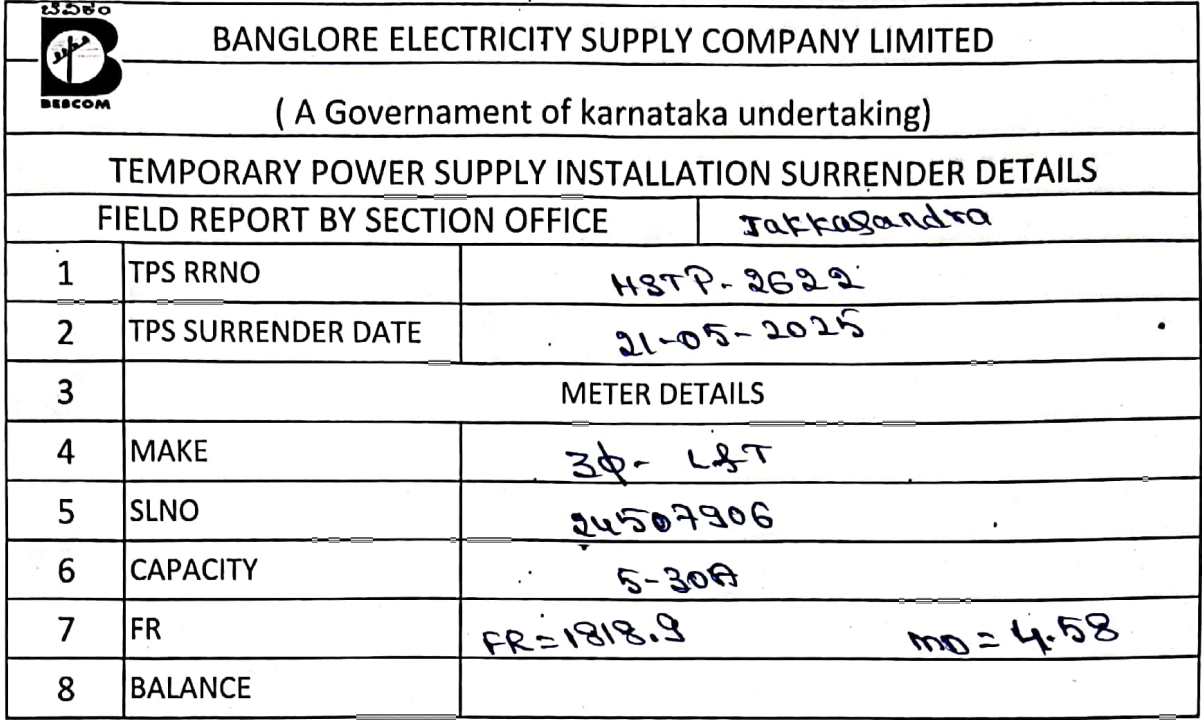 ಬೆವಿಕಂ
BESCOM
BANGLORE ELECTRICITY SUPPLY COMPANY LIMITED
( A Governament of karnataka undertaking)
TEMPORARY POWER SUPPLY INSTALLATION SURRENDER DETAILS
FIELD REPORT BY SECTION OFFICE Jakkasandra
1 TPS RRNO HSTP-2622
2 TPS SURRENDER DATE 21-05-2025
3 METER DETAILS
4 MAKE 3ϕ- L&T
5 SLNO 24507906
6 CAPACITY 5-30A
7 FR FR=1818.9 MD=4.58
8 BALANCE